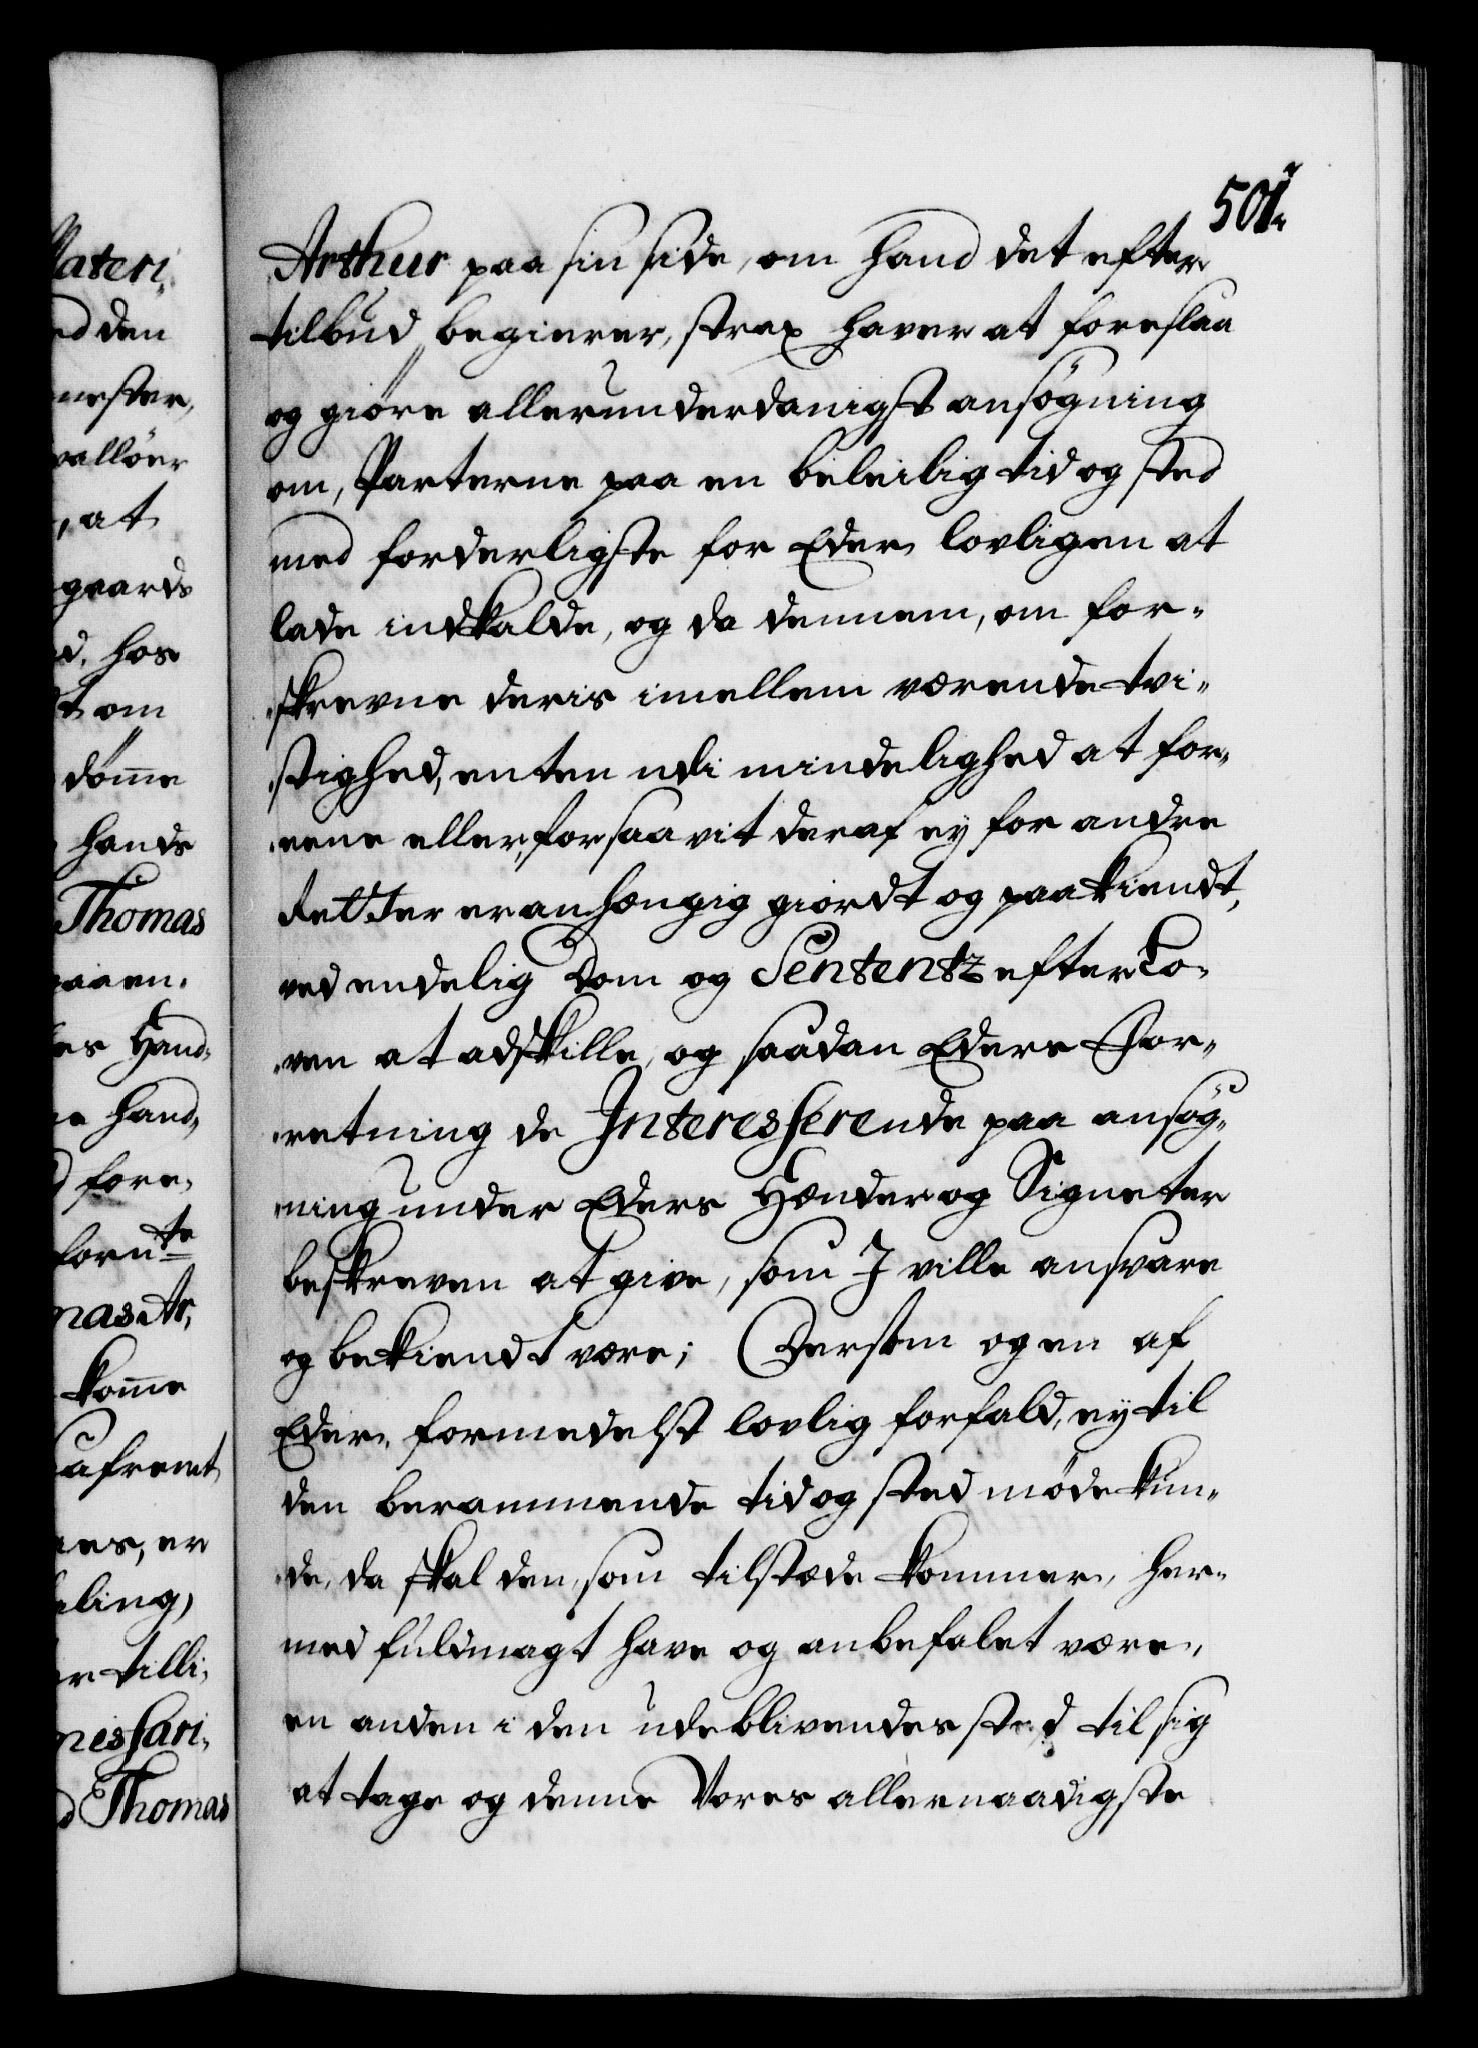 501.
Arthur paa sin side, om hand det efter
tilbud begierer, strax haver at foreslaa
og giöre allerunderdanigst ansögning
om, Parterne paa en beleilig tid og sted
med forderligste for Eder lovligen at
lade indkalde, og da dennem, om for-
skrevne deris imellem værende tvi-
stighed, enten udi mindelighed at for-
eene eller, forsaavit deraf ey for andre
Retter er anhængig giordt og paakiendt,
ved endelig Dom og Sententz efter Lo-
ven at adskille, og saadan Eders For-
retning de Interesserende paa ansög-
ning under Eders Hænder og Signeter
beskreven at give, som I ville ansvare
og bekiendt være; Dersom og en af
Eder, formedelst lovlig forfald, ey til
den berammende tid og sted möde kun-
de, da skal den, som tilstæde kommer, her-
med fuldmagt have og anbefalet være,
en anden i den udeblivendes sted til sig
at tage og denne Vores allernaadigste
Materi-
den
mester,
valloer
, at
gaards
hos
om
döme
hands
Thomas
paa en.
Hand-
hand,
fore,
fornte
mas Ar,
kome
uafremt
er
ling,
tilli,
missari,
Thomas